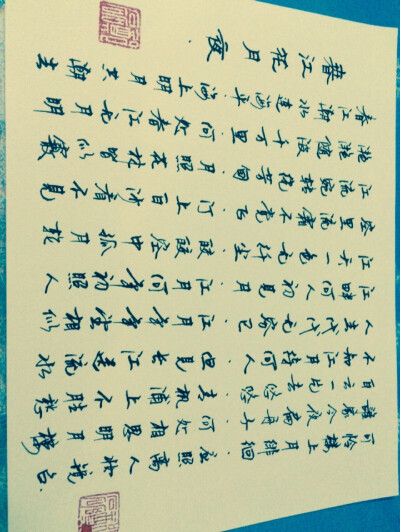 春江花月夜
春江潮水連海平.海上明月共潮生
滟滟随波千万里.何处春江无月明
江流宛轉绕芳甸.月照花林皆似霰
空里流霜不觉飞.汀上白沙看不見
江天一色无纤尘.皎皎空中孤月轮
江畔何人初見月.江月何年初照人
人生代代无穷已.江月年年望相似
不知江月待何人.但見长江送流水
白云一片去悠悠.青枫浦上不胜愁
谁家今夜扁舟子.何处相思明月楼
可怜楼上月徘徊.应照离人妆镜台.